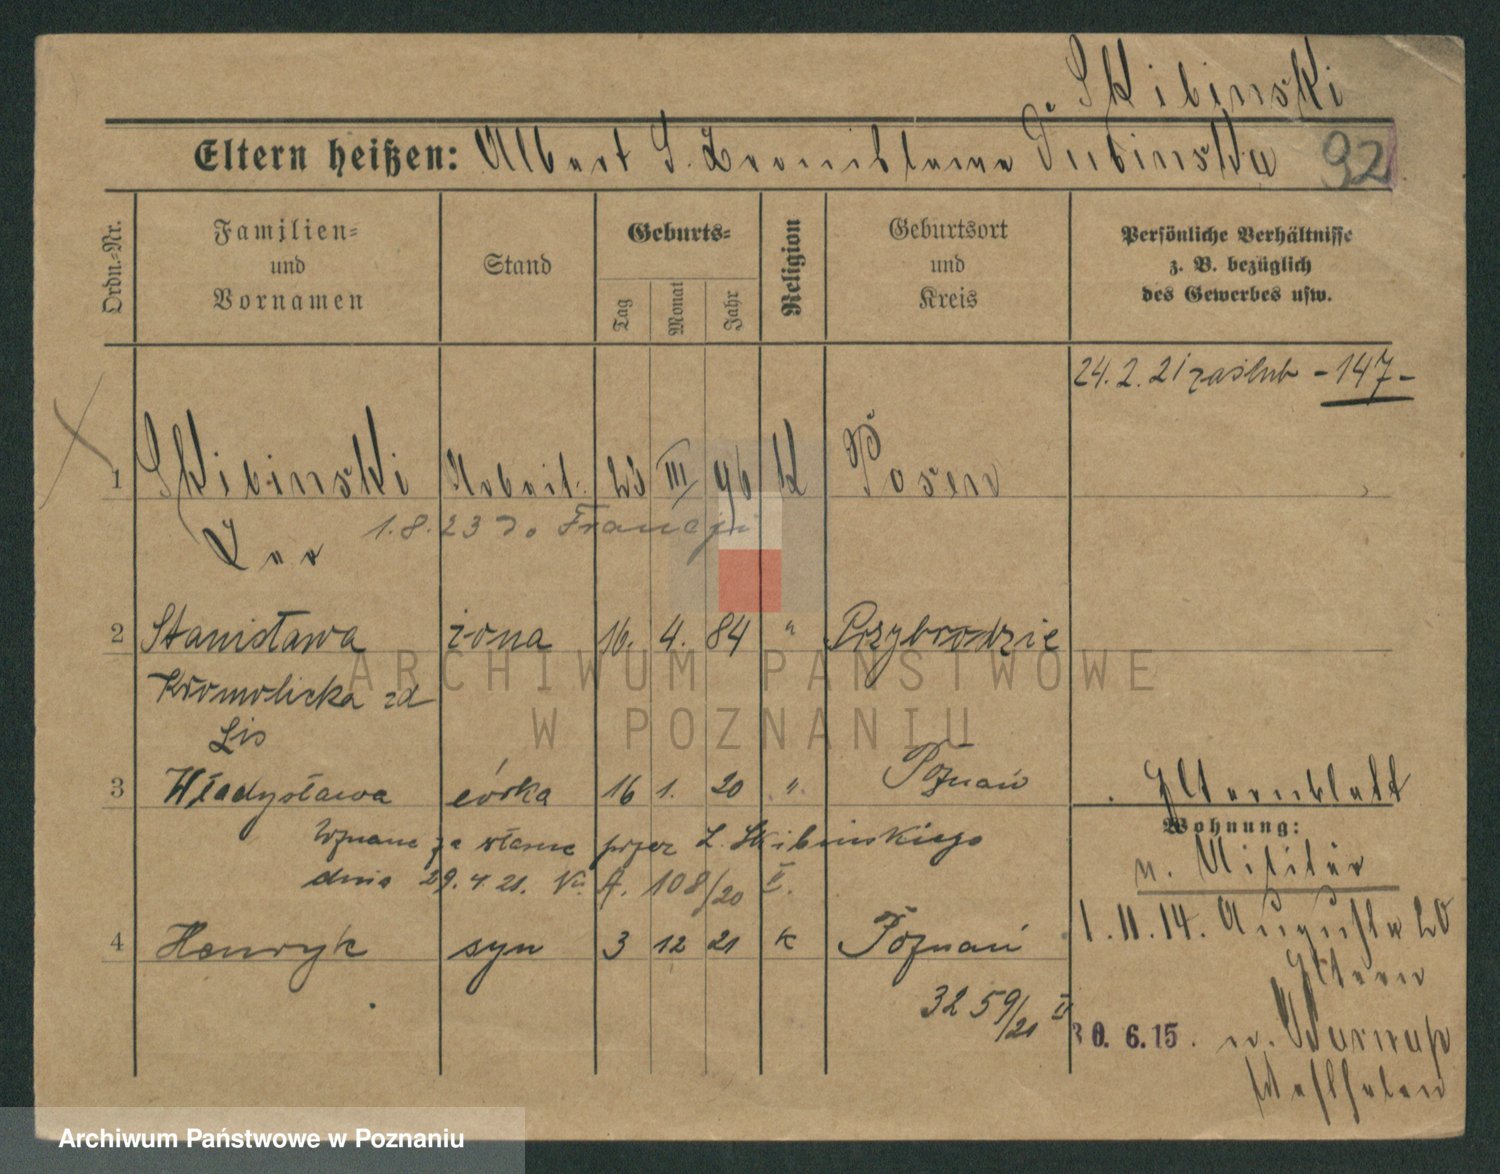 Skibinski
Eltern heißen: Albert S. Bronislawa Dubinska
92
Ordn.-Nr.
Familien-
und
Vornamen
Stand
Geburts-
Tag
Monat
Jahr
Religion
Geburtsort
und
Kreis
Persönliche Verhältnisse
z. B. bezüglich
des Gewerbes usw.
24. 2. 21 zaślub - 147 -
1 Skibinski Arbeit. 23 III 96 K Posen
Leo 1. 8. 23 do Francji
2 Stanisława żona 16. 4. 84 " Przybrodzie
Kromolicka zd
Lis
3 Władysława córka 16 1. 20 " Poznań
Elternblatt
Uznane za własne przez L. Skibinskiego
Wohnung:
dnia 29. 4. 21. A. 108/20 II.
n. Militär
1. 11. 14. Augusta 20
Eltern
4 Henryk syn 3 12 21 K Poznań
3259/21 II
30. 6. 15. n.
Westfalen
ARCHIWUM PAŃSTWOWE
W POZNANIU
Archiwum Państwowe w Poznaniu